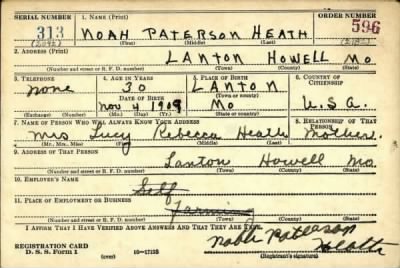 SERIAL NUMBER
1. NAME (Print)
ORDER NUMBER
313 NOAH PATERSON HEATH 596
(First) (Middle) (Last)
2. ADDRESS (Print)
LANTON HOWELL MO.
(Number and street or R. F. D. number) (Town) (County) (State)
3. TELEPHONE
4. AGE IN YEARS
5. PLACE OF BIRTH
6. COUNTRY OF CITIZENSHIP
none 30 LANTON
DATE OF BIRTH
(Town or county)
Nov 4 1909 Mo U.S.A.
(Exchange) (Number) (Mo.) (Day) (Yr.) (State or country)
7. NAME OF PERSON WHO WILL ALWAYS KNOW YOUR ADDRESS
8. RELATIONSHIP OF THAT PERSON
Mrs Lucy Rebecca Heath Mother
(Mr., Mrs., Miss) (First) (Middle) (Last)
9. ADDRESS OF THAT PERSON
Lanton Howell Mo.
(Number and street or R. F. D. number) (Town) (County) (State)
10. EMPLOYER'S NAME
Self
11. PLACE OF EMPLOYMENT OR BUSINESS
Farming
(Number and street or R. F. D. number) (Town) (County) (State)
I AFFIRM THAT I HAVE VERIFIED ABOVE ANSWERS AND THAT THEY ARE TRUE.
REGISTRATION CARD
D. S. S. Form 1
(over)
16—17105
Noah Paterson Heath
(Registrant's signature)